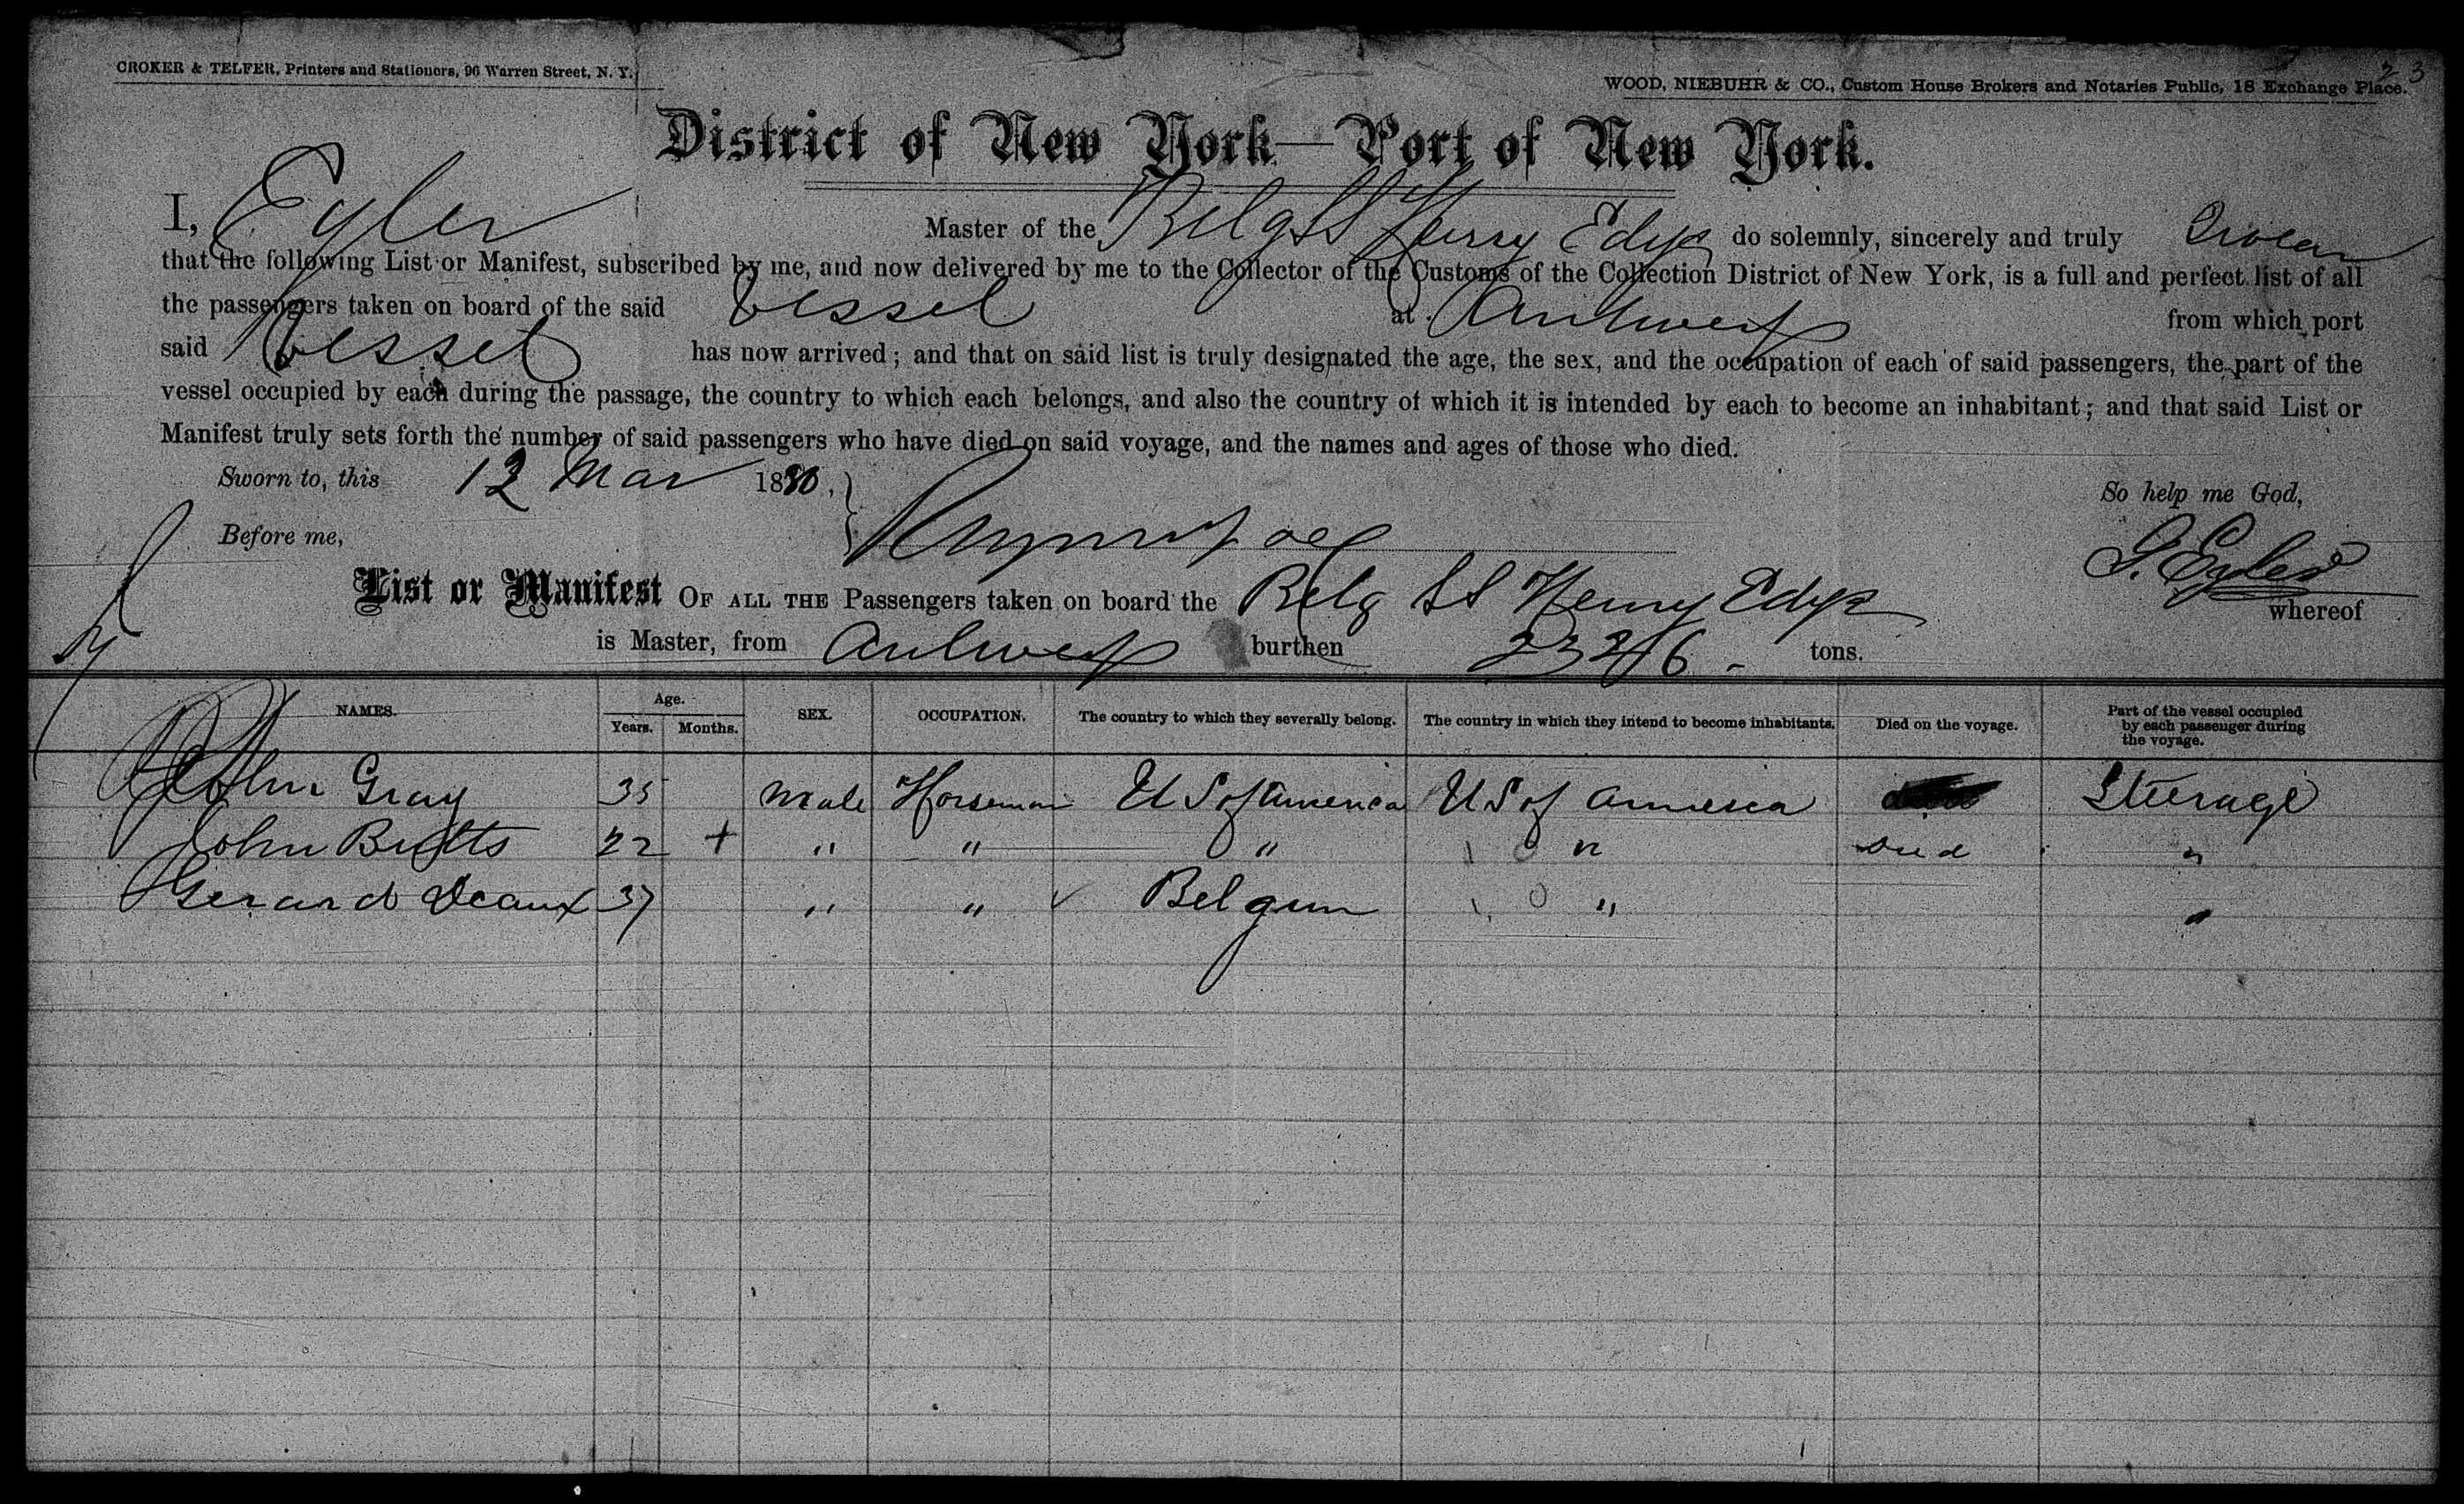 23
CROKER & TELFER, Printers and Stationers, 96 Warren Street, N. Y.
WOOD, NIEBUHR & CO., Custom House Brokers and Notaries Public, 18 Exchange Place.
District of New York—Port of New York.
I, Eyler Master of the Belg SS Henry Edye do solemnly, sincerely and truly Swear
that the following List or Manifest, subscribed by me, and now delivered by me to the Collector of the Customs of the Collection District of New York, is a full and perfect list of all
the passengers taken on board of the said Vessel at Antwerp from which port
said Vessel has now arrived; and that on said list is truly designated the age, the sex, and the occupation of each of said passengers, the part of the
vessel occupied by each during the passage, the country to which each belongs, and also the country of which it is intended by each to become an inhabitant; and that said List or
Manifest truly sets forth the number of said passengers who have died on said voyage, and the names and ages of those who died.
Sworn to, this 12 Mar 1880, So help me God,
Before me, G. Eyler
List or Manifest OF ALL THE Passengers taken on board the Belg SS Henry Edye whereof
is Master, from Antwerp burthen tons.
NAMES. Age. Years. Months. SEX. OCCUPATION. The country to which they severally belong. The country in which they intend to become inhabitants. Died on the voyage. Part of the vessel occupied by each passenger during the voyage.
John Gray 35 Male Horseman U S of America U S of America Steerage
John Butts 22 + " " " " Died "
Gerard Deaux 37 " " Belgium " "